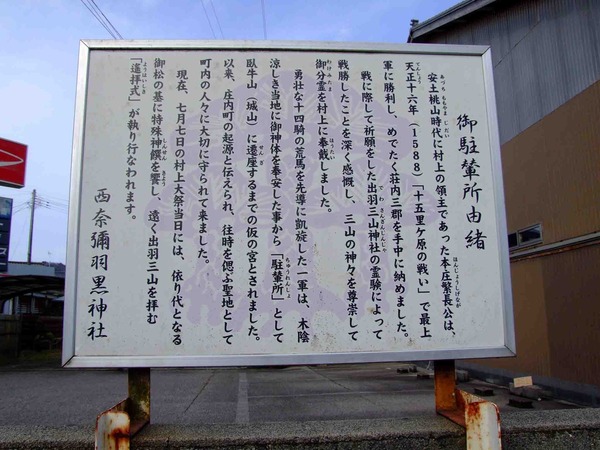 御駐輦所由緒
安土桃山時代に村上の領主であった本庄繁長公は、
天正十六年（1588）「十五里ケ原の戦い」で最上
軍に勝利し、めでたく荘内三郡を手中に納めました。
戦に際して祈願をした出羽三山神社の霊験によって
戦勝したことを深く感慨し、三山の神々を尊崇して
御分霊を村上に奉戴しました。
勇壮な十四騎の荒馬を先導に凱旋した一軍は、木陰
涼しき当地に御神体を奉安した事から「駐輦所」として
臥牛山（城山）に遷座するまでの仮の宮とされました。
以来、庄内町の起源と伝えられ、往時を偲ぶ聖地として
町内の人々に大切に守られて来ました。
現在、七月七日の村上大祭当日には、依り代となる
御松の基に特殊神饌を饗し、遠く出羽三山を拝む
「遥拝式」が執り行なわれます。
西奈彌羽黒神社